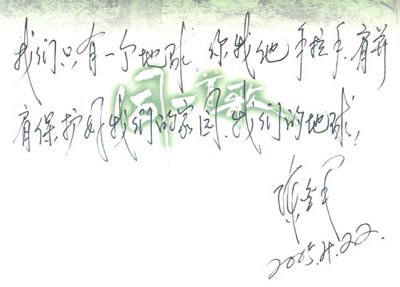 我们只有一个地球,你我他手拉手,肩并
肩保护好我们的家园,我们的地球!
同一首歌
2005.4.22.